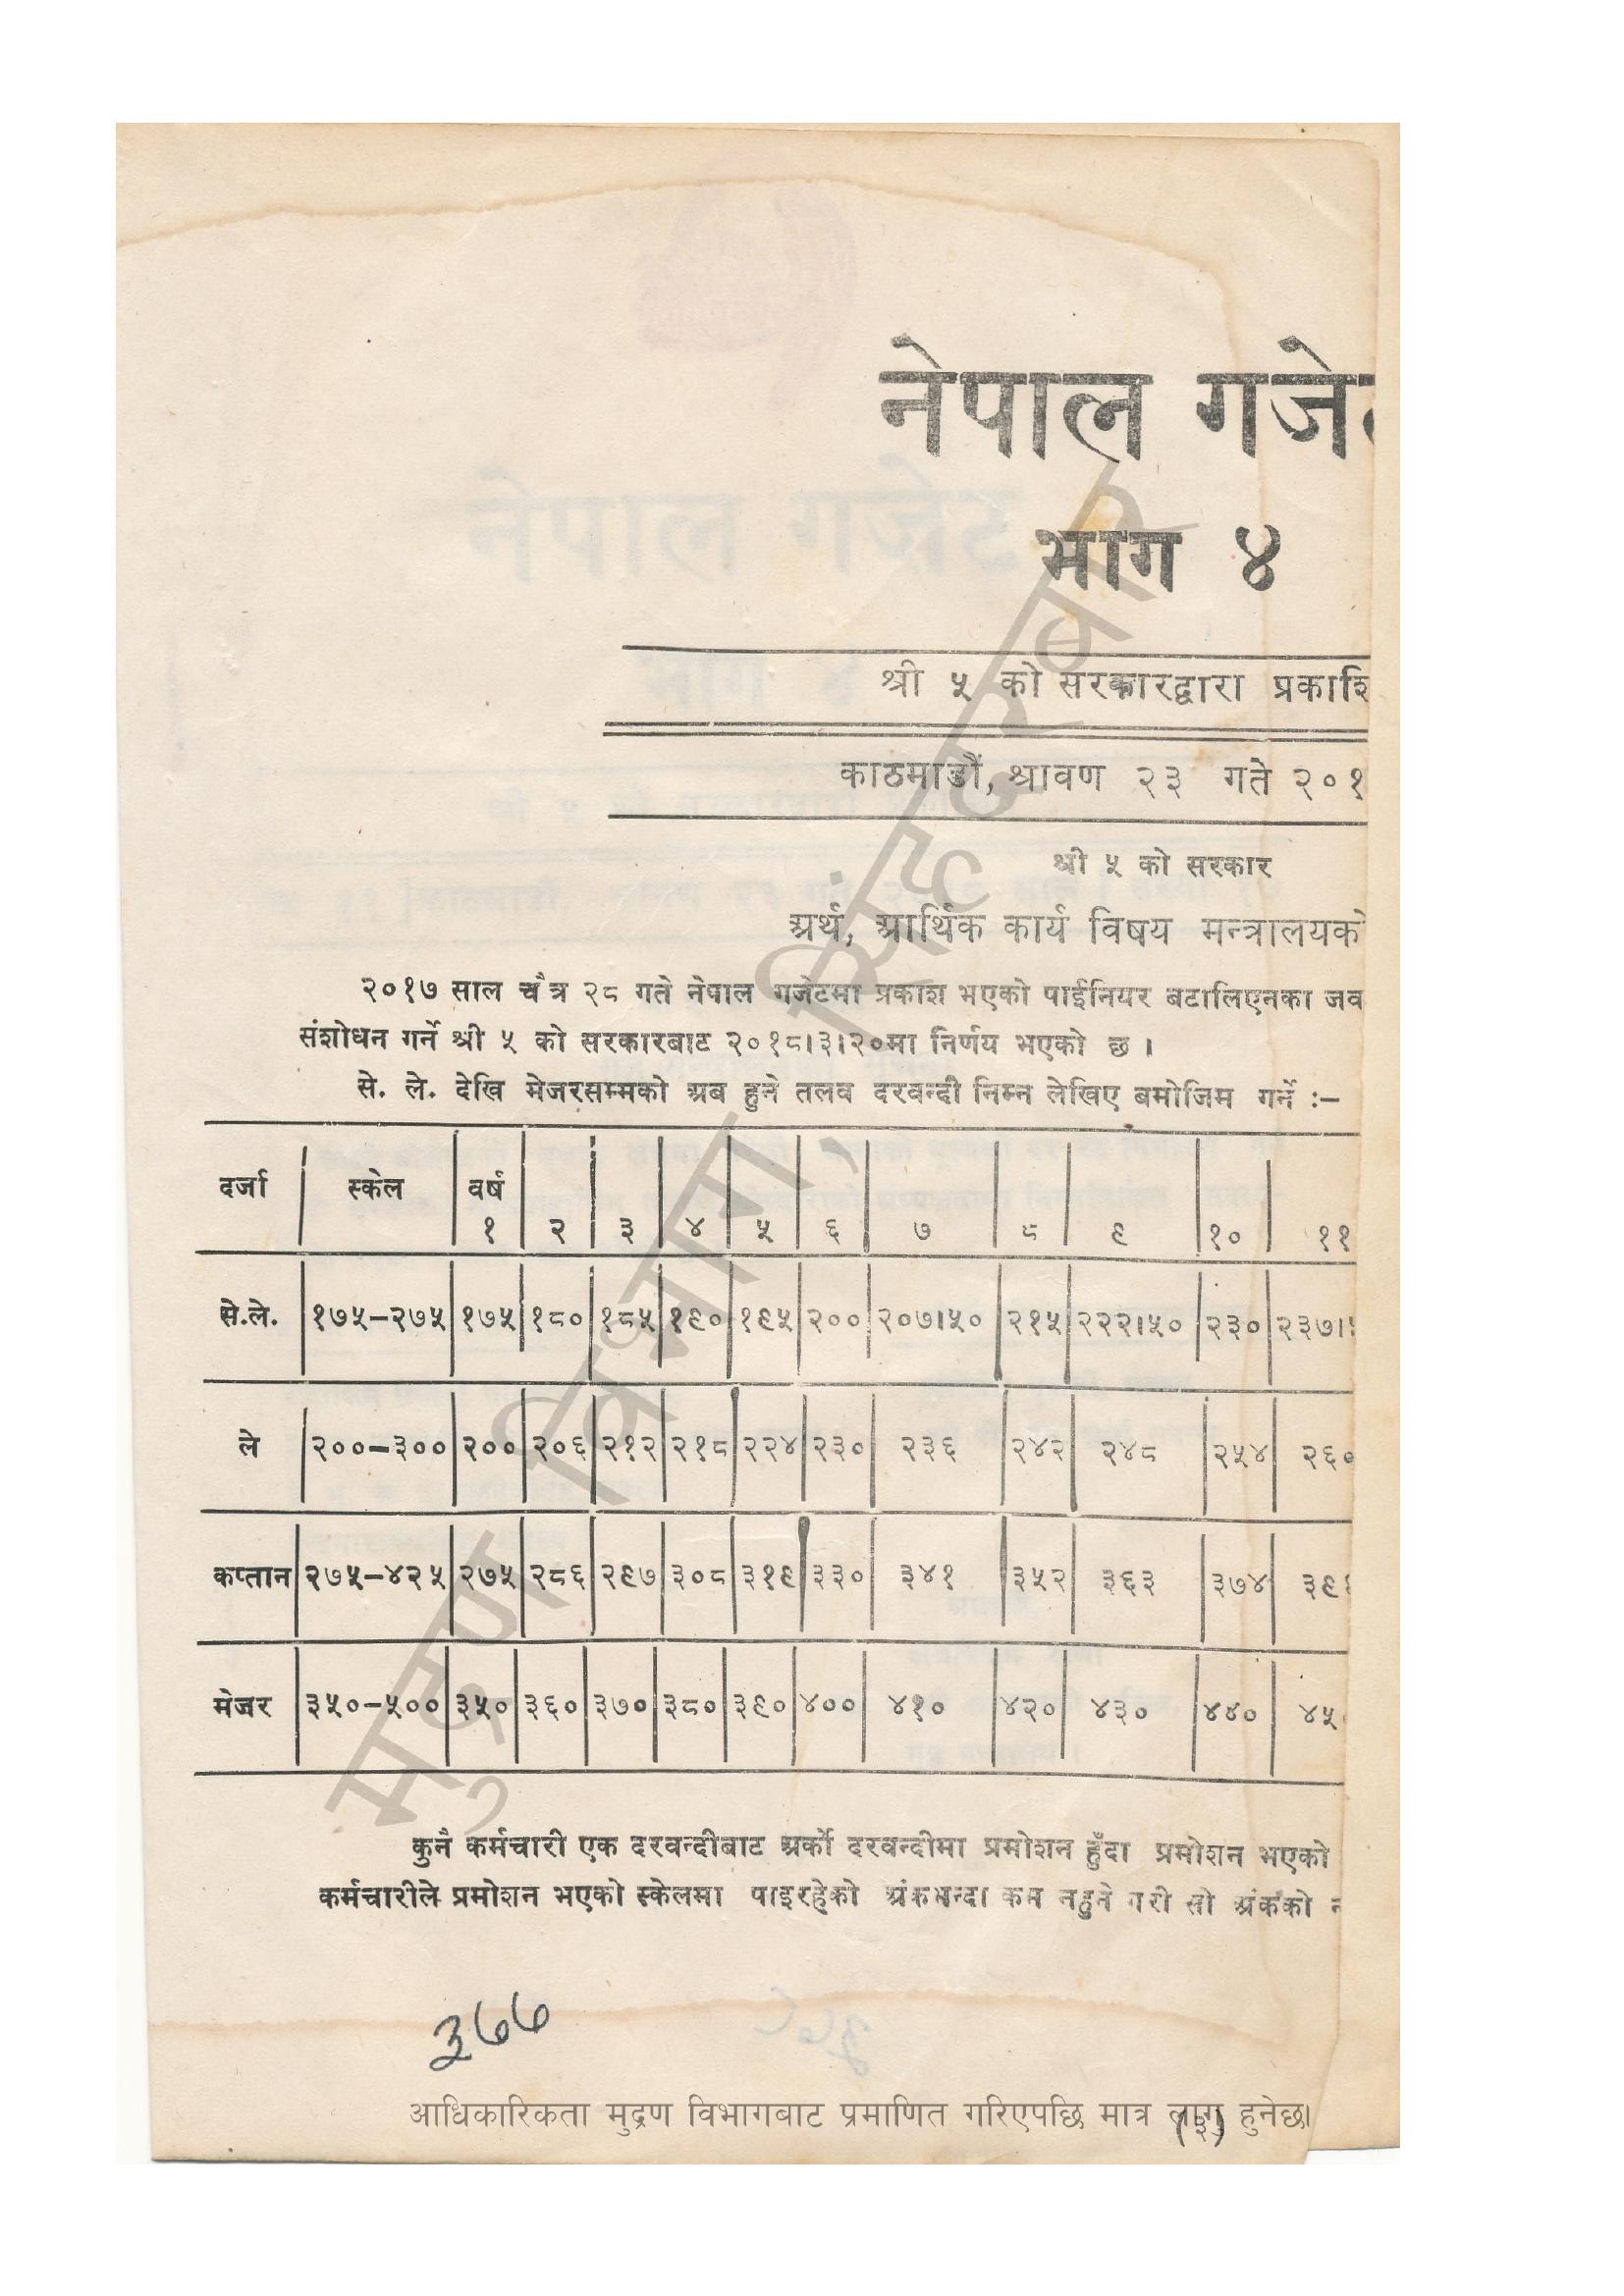 नेपाल गजे
भाग ४
श्री ५ को सरकारद्वारा प्रकाशि
काठमाडौं, श्रावण २३ गते २०१
श्री ५ को सरकार
अर्थ, आर्थिक कार्य विषय मन्त्रालयको
२०१७ साल चैत्र २८ गते नेपाल गजेटमा प्रकाश भएको पाईनियर बटालिएनका जव
संशोधन गर्ने श्री ५ को सरकारबाट २०१८।३।२०मा निर्णय भएको छ ।
से. ले. देखि मेजरसम्मको अब हुने तलव दरवन्दी निम्न लेखिए बमोजिम गर्ने :–
दर्जा स्केल वर्ष
१ २ ३ ४ ५ ६ ७ ८ ९ १० ११
से.ले. १७५–२७५ १७५ १८० १८५ १९० १९५ २०० २०७।५० २१५ २२२।५० २३० २३७।
ले २००–३०० २०० २०६ २१२ २१८ २२४ २३० २३६ २४२ २४८ २५४ २६०
कप्तान २७५–४२५ २७५ २८६ २९७ ३०८ ३१९ ३३० ३४१ ३५२ ३६३ ३७४ ३९
मेजर ३५०–५०० ३५० ३६० ३७० ३८० ३९० ४०० ४१० ४२० ४३० ४४० ४५
कुनै कर्मचारी एक दरवन्दीबाट अर्को दरवन्दीमा प्रमोशन हुँदा प्रमोशन भएको
कर्मचारीले प्रमोशन भएको स्केलमा पाइरहेको अंकभन्दा कम नहुने गरी सो अंकको
३७७
आधिकारिकता मुद्रण विभागबाट प्रमाणित गरिएपछि मात्र लागु हुनेछ।
(३)
मुद्रण विभाग, सिंहदरबार